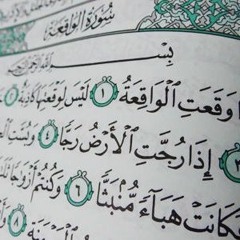 سُورَةُ الْوَاقِعَةِ
بِسْمِ
وَقَعَتِ ٱلْوَاقِعَةُ ١ لَيْسَ لِوَقْعَتِهَا كَاذِبَةٌ ٢
٣ إِذَا رُجَّتِ ٱلْأَرْضُ رَجًّا ٤ وَبُسَّتِ
فَكَانَتْ هَبَآءً مُّنۢبَثًّا ٦ وَكُنتُمْ أَزْوَٰجًا
٨